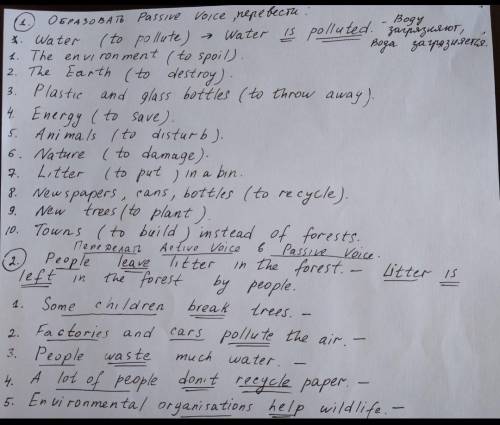 1. Образовать Passive Voice, перевести:
x. Water (to pollute) → Water is polluted. - Воду загрязняют, Вода загрязняется.
1. The environment (to spoil).
2. The Earth (to destroy).
3. Plastic and glass bottles (to throw away).
4. Energy (to save).
5. Animals (to disturb).
6. Nature (to damage).
7. Litter (to put) in a bin.
8. Newspapers, cans, bottles (to recycle).
9. New trees (to plant).
10. Towns (to build) instead of forests.
Переделать Active Voice в Passive Voice.
2. People leave litter in the forest. - Litter is
left in the forest by people.
1. Some children break trees. -
2. Factories and cars pollute the air. -
3. People waste much water. -
4. A lot of people don't recycle paper. -
5. Environmental organisations help wildlife. -